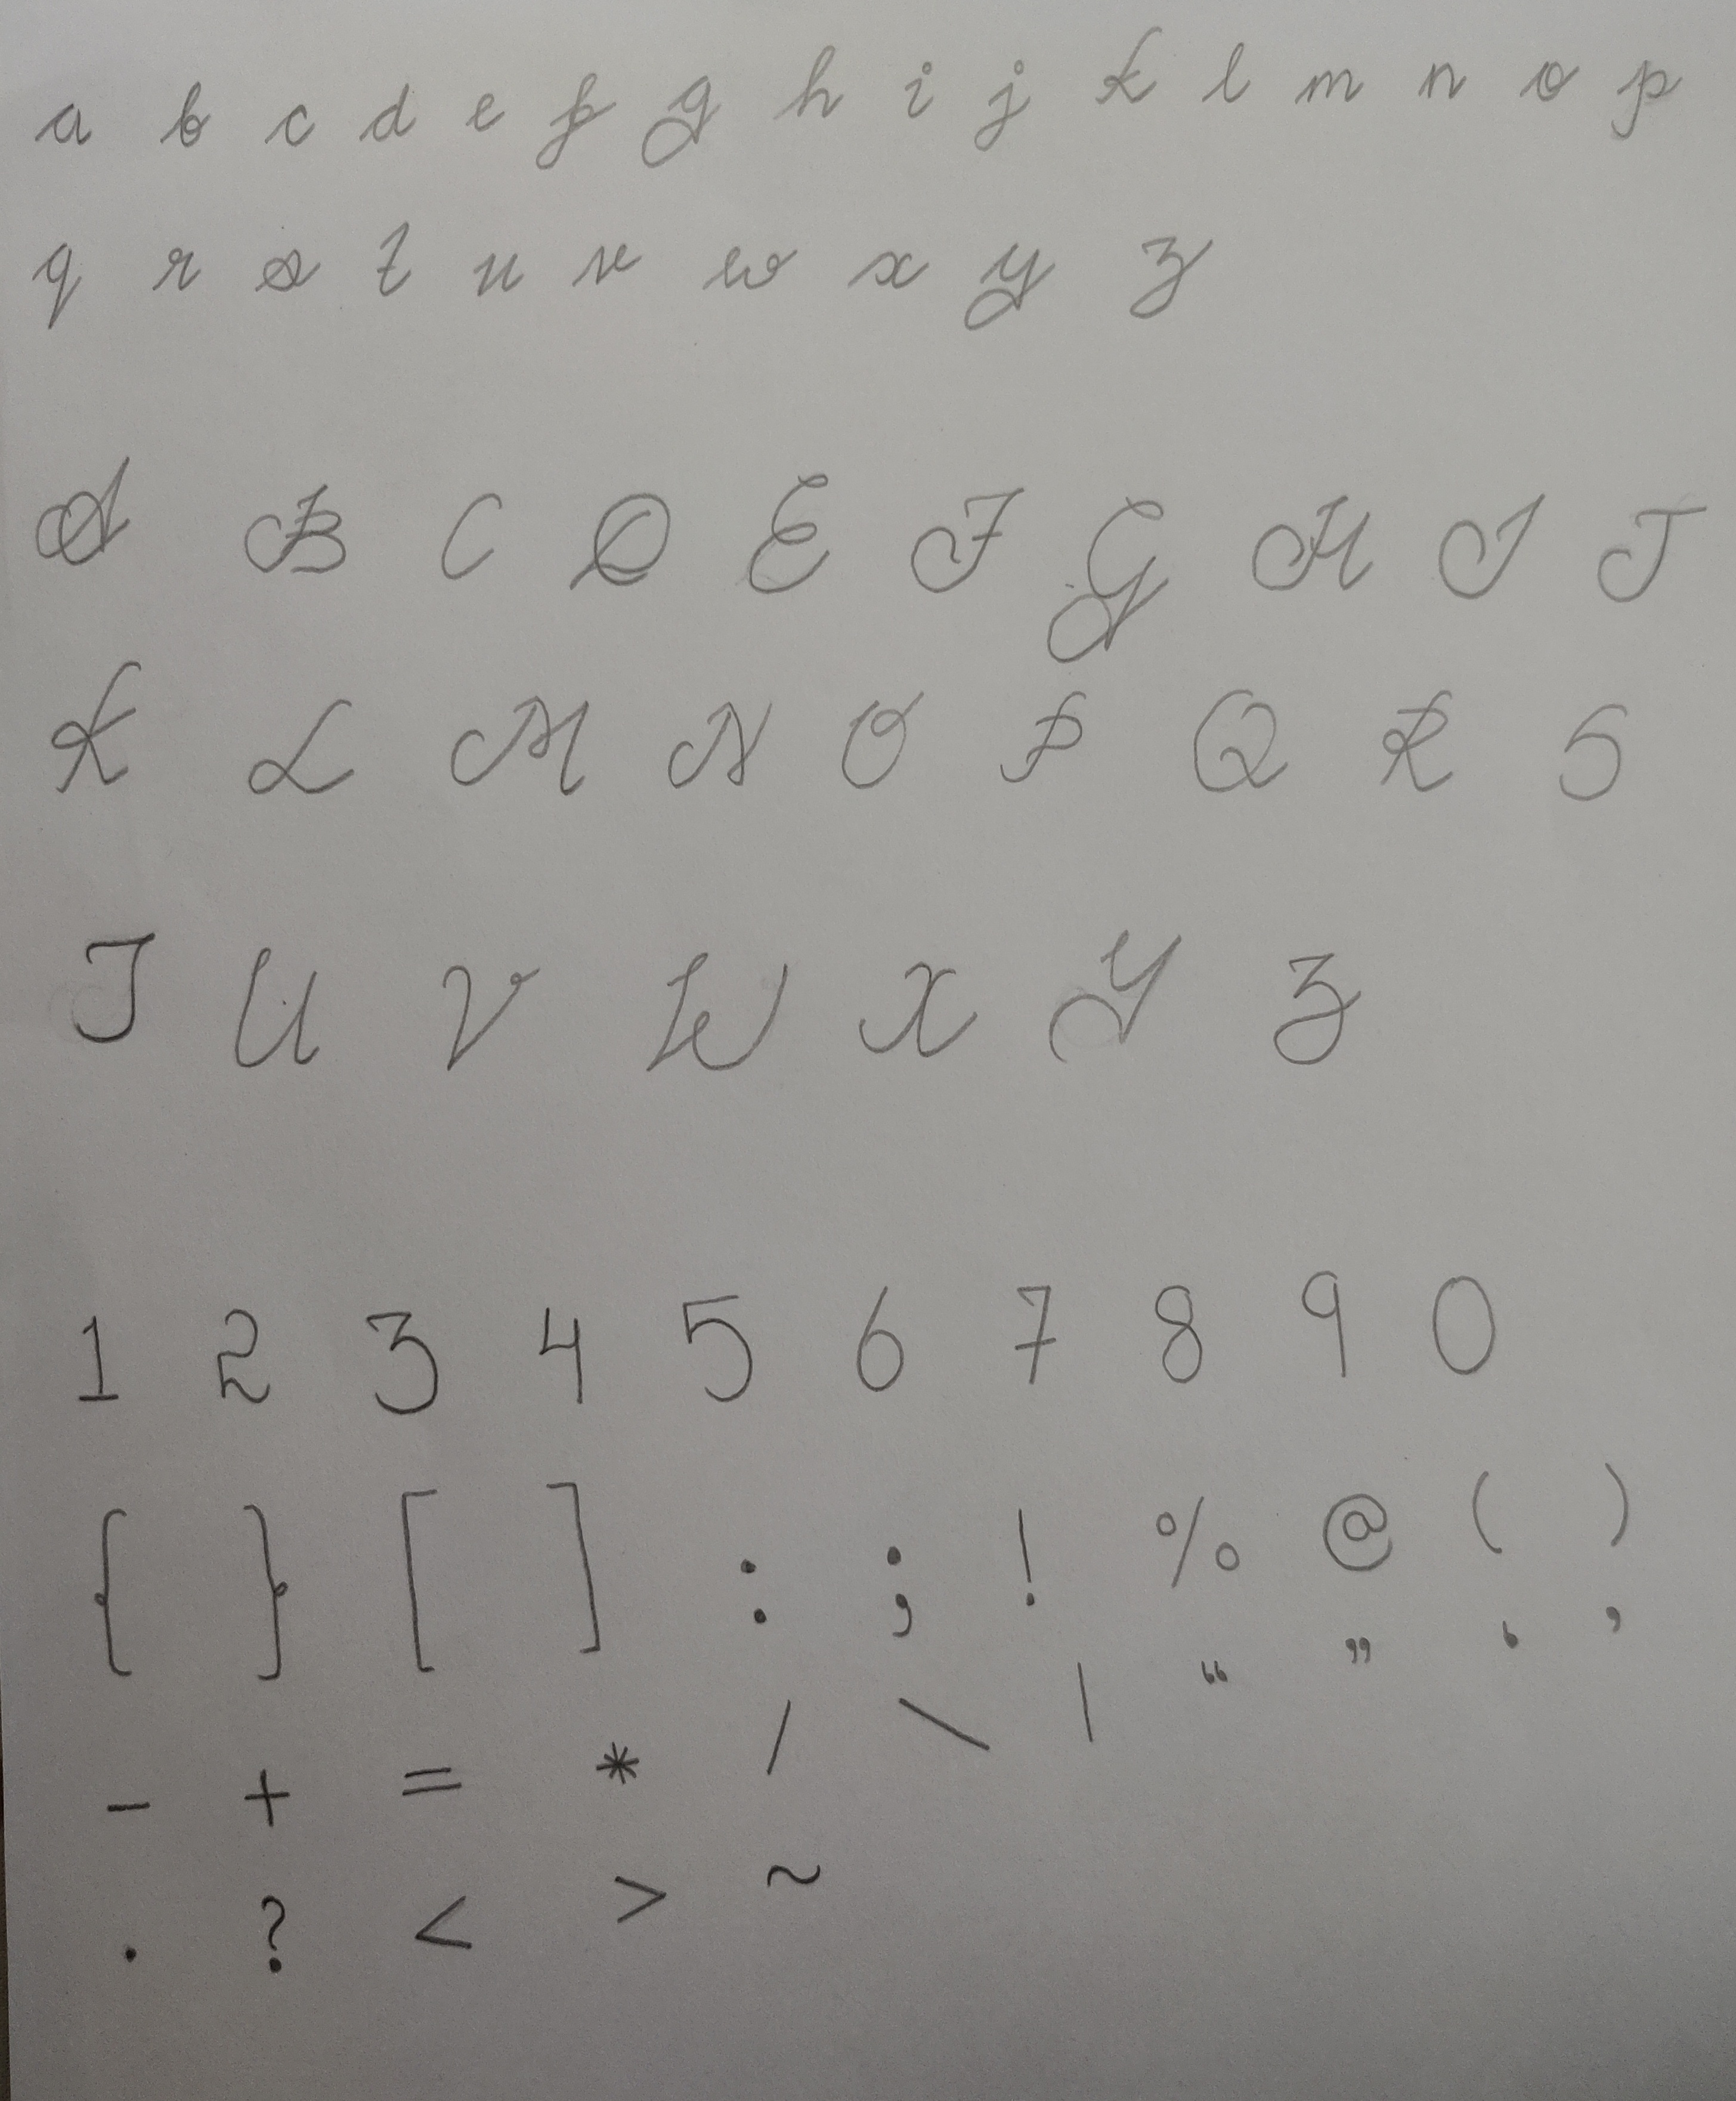 a b c d e f g h i j k l m n o p
q r s t u v w x y z
A B C D E F G H I J
K L M N O P Q R S
T U V W X Y Z
1 2 3 4 5 6 7 8 9 0
{ } [ ] : ; ! % @ ( )
- + = * / \ | “ ” ‘ ’
. ? < > ~